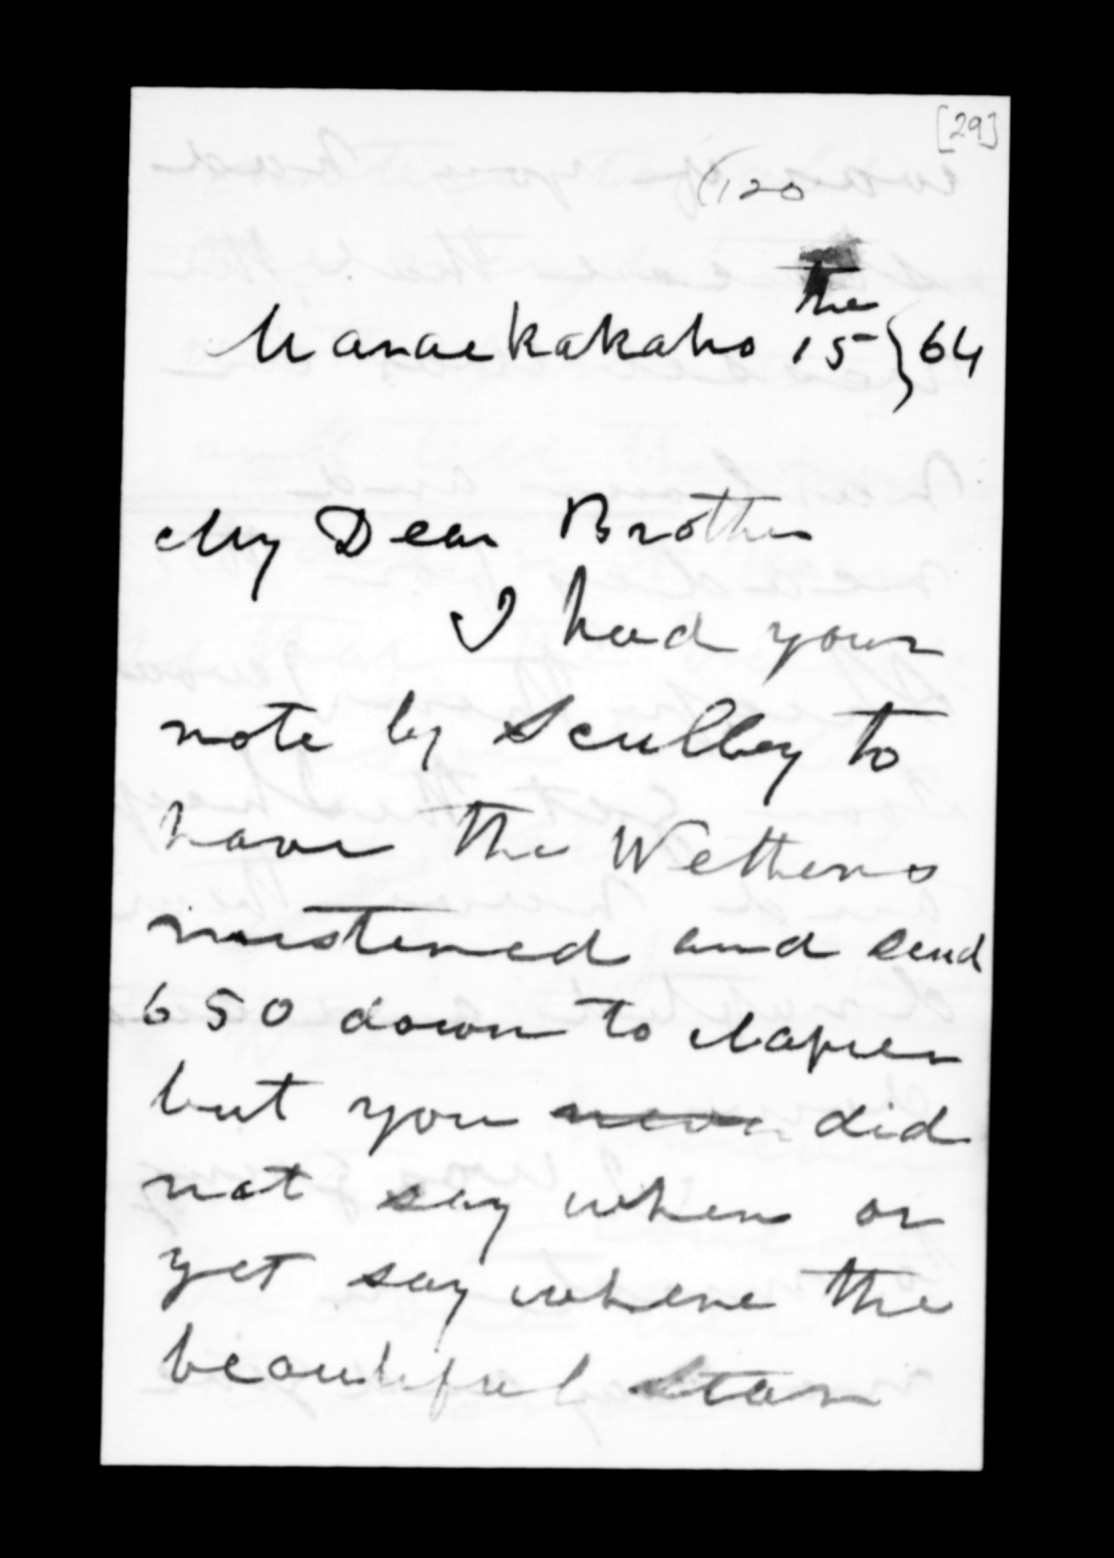 [29]
(120
the
Maraekakaho 15 } 64
My Dear Brother
I had your
note by Sculley to
have the Wethers
mustered and send
650 down to Napier
but you never did
not say when or
yet say where the
beautiful Star